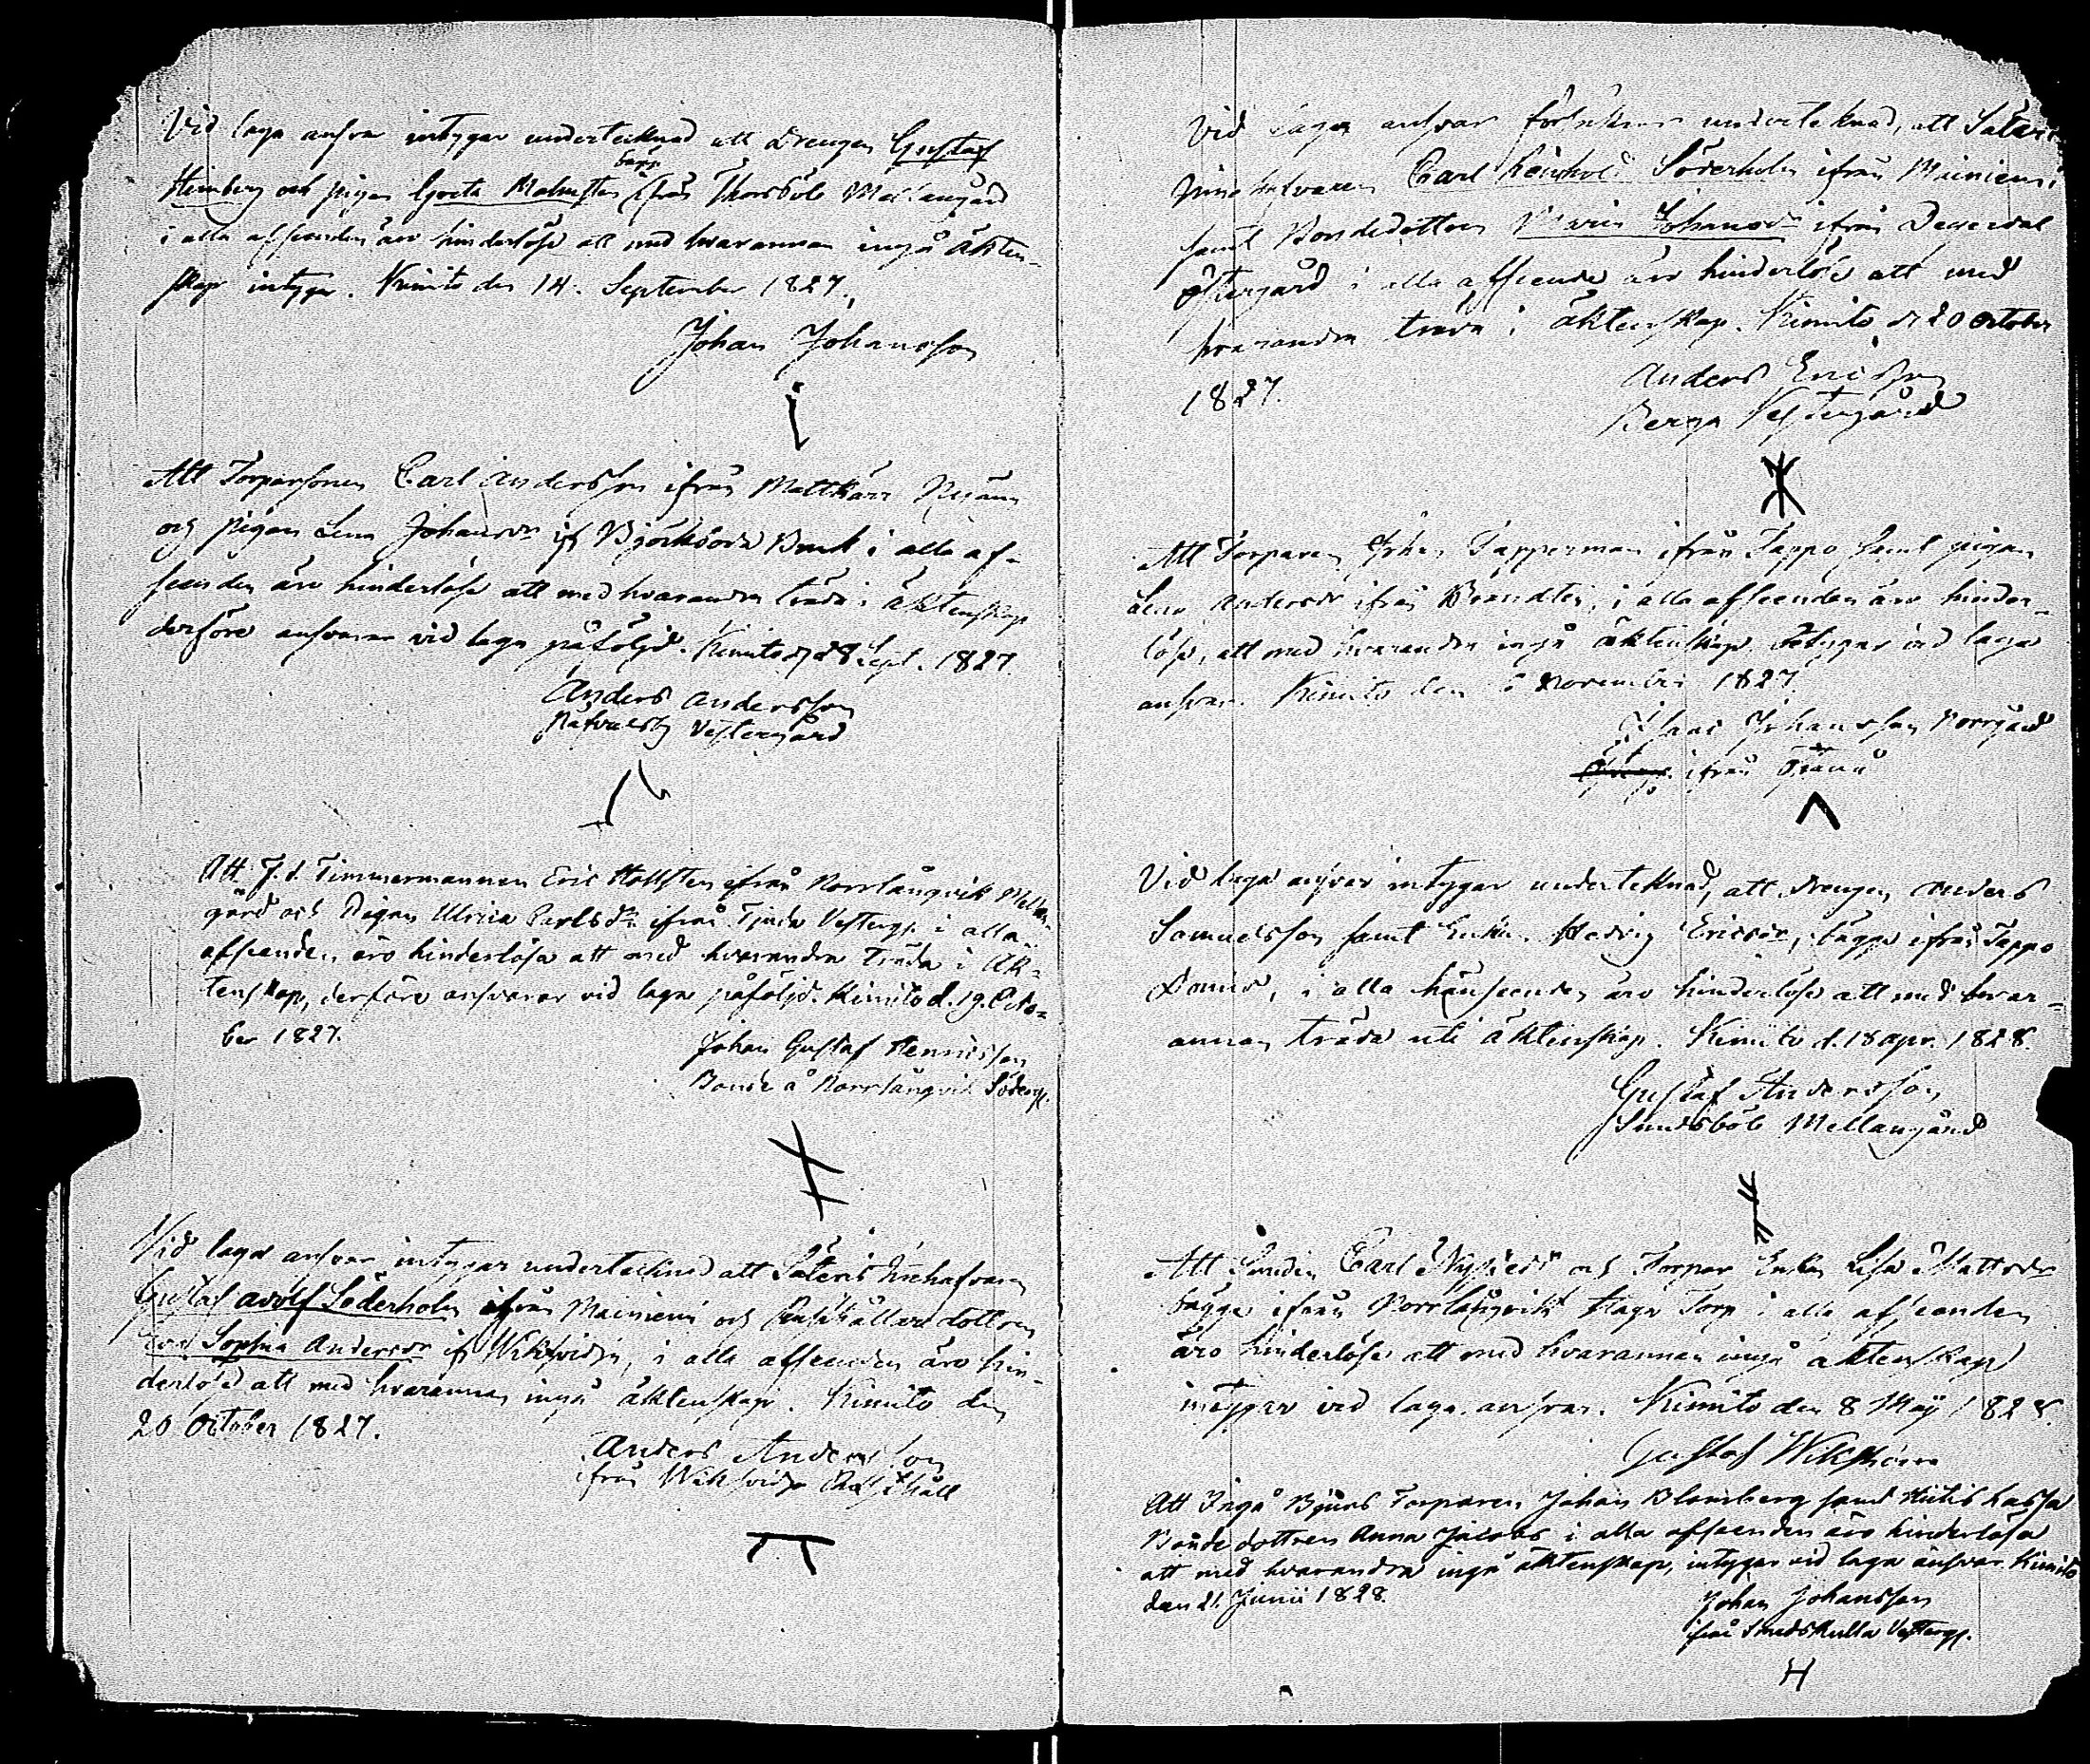 Vid laga ansvar intygar undertecknad att Drengen Gustaf
Heinberg och pigan Greta Malmsten bägge ifrån Thorsböle Mellangård
i alla afseenden äro hinderlöse att med hvarannan ingå äkten-
skap intygar. Kimito den 14. September 1827.
Johan Johansson
Att Torparsonen Carl Andersson ifrån Mattkärr Nyäng
och pigan Lena Johansdr if Björkboda Bruk i alla af-
seenden äro hinderlöse att med hvarandra träda i äktenskap
derföre ansvarar vid laga påföljd. Kimito d 28 Sept. 1827.
Anders Andersson
Vestergård
Att F.d. Timmermannen Eric Hollsten ifrån Norrlångvik Mellan-
gård och Pigan Ulrica Carlsdr ifrån Tjuda Vestergd i alla
afseenden äro hinderlösa att med hvarandra träda i Äk-
tenskap, derföre ansvarar vid laga påföljd. Kimito d. 19. Octo-
ber 1827.
Johan Gustaf Henricsson
Bonde å Norrlångvik Södergd.
Vid laga ansvar intygar undertecknad att Säteris
Gustaf Adolf Söderholm ifrån Mainiemi och dottren
Eva Sophia Andersdr if Wiksvidja, i alla afseenden äro hin-
derlöse att med hvarannan ingå äktenskap. Kimito den
20 October 1827.
Anders Andersson
från Wiksvidja
Vid laga ansvar försäkrar underteknad, att Säteri
Carl Reinhold Söderholm ifrån Mainiemi
samt Bondedottren Maria Johansdr ifrån Degerdal
Östergård i alla afseende äro hinderlöse att med
hvarandra träda i äktenskap. Kimito d 20 October
1827.
Anders Ericsson
Berga Vestergård
Att Torparen Johan Tapperman ifrån Tappo samt pigan
Lena Andersdr ifrån, i alla afseenden äro hinder-
löse, att med hvarandra ingå äktenskap, betygar vid laga
ansvar. Kimito den November 1827.
Isaac Johansson Norrgård
ifrån
Vid laga ansvar intygar underteknad, att Drengen Anders
Samuelsson samt Enkan Hedvig Ericsdr, bägge ifrån Tappo
, i alla hänseenden äro hinderlöse att med hvar-
annan träda uti äktenskap. Kimito d. 18 apr. 1828.
Gustaf Andersson
Sundsböle Mellangård
Att Smeden Carl och Torpar Enkan Lisa Mattsdr
bägge ifrån Norrlångvik Haga Torp i alla afseenden
äro hinderlöse att med hvarannan ingå äktenskap
intygar vid laga ansvar. Kimito den 8 Maji 1828.
Gustaf Wikström
Att Ingå Bjärs Torparen Johan Blomberg samt Hitis
Bondedottren Anna Jacobs i alla afseenden äro hinderlösa
att med hvarandra ingå äktenskap, intygar vid laga ansvar. Kimito
den 21. Junii 1828.
Johan Johansson
ifrån Smedskulla Vestergd.
H